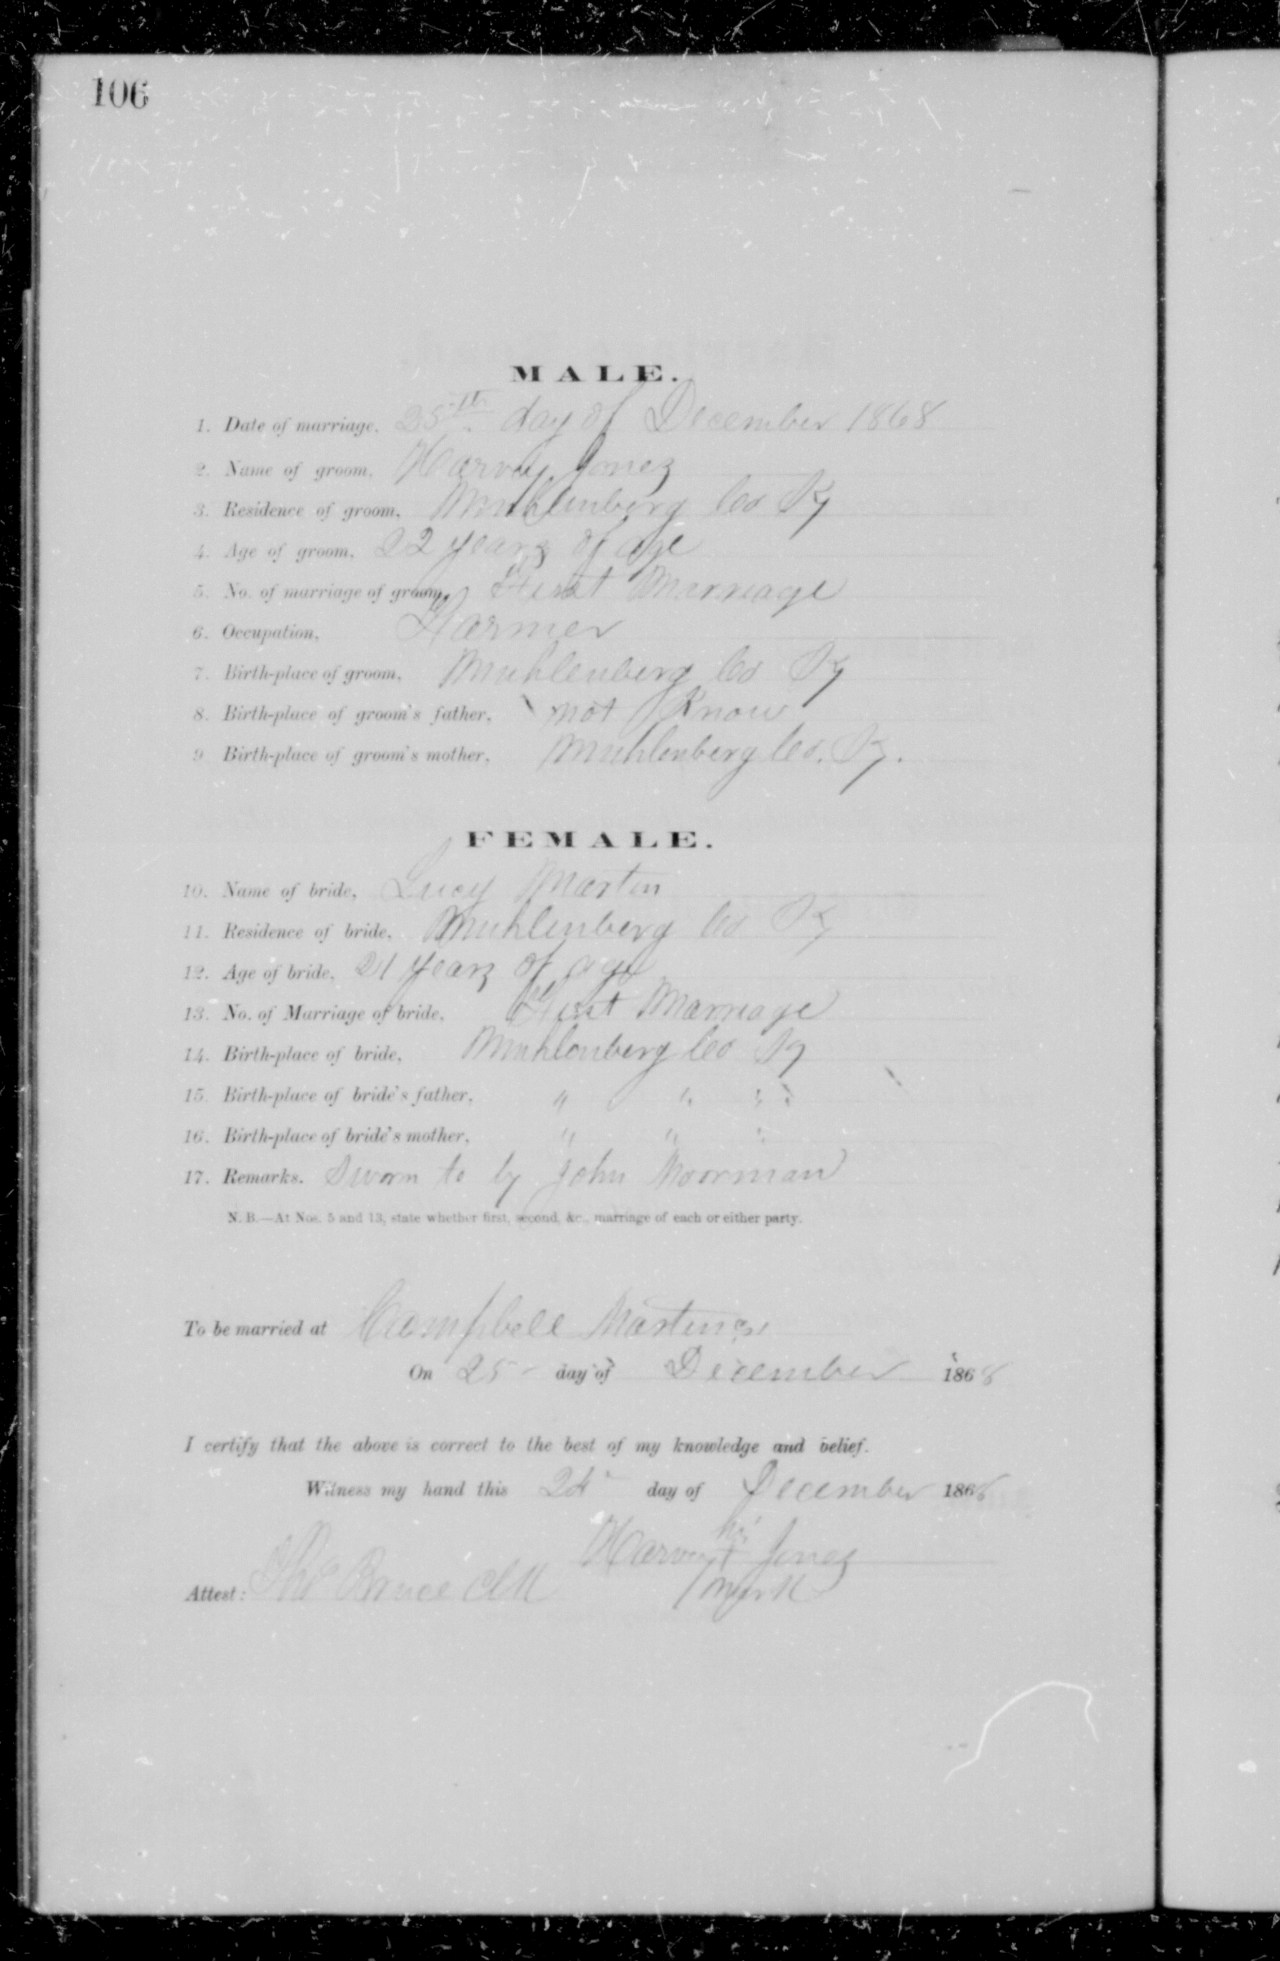 106
MALE.
1. Date of marriage, 25th day of December 1868
2. Name of groom, Harvey Jones
3. Residence of groom, Muhlenberg Co Ky
4. Age of groom, 22 years of age
5. No. of marriage of groom, First Marriage
6. Occupation, Farmer
7. Birth-place of groom, Muhlenberg Co Ky
8. Birth-place of groom's father, not Know
9 Birth-place of groom's mother, Muhlenberg Co. Ky.
FEMALE.
10. Name of bride, Lucy Martin
11. Residence of bride, Muhlenberg Co Ky
12. Age of bride, 21 years of age
13. No. of Marriage of bride, First Marriage
14. Birth-place of bride, Muhlenberg Co Ky
15. Birth-place of bride's father, " " "
16. Birth-place of bride's mother, " " "
17. Remarks. Sworn to by John Moorman
N. B.—At Nos. 5 and 13, state whether first, second, &c., marriage of each or either party.
To be married at Campbell Martins
On 25 day of December 1868
I certify that the above is correct to the best of my knowledge and belief.
Witness my hand this 24 day of December 1868
his
Harvey + Jones
mark
Attest: Bruce Clk